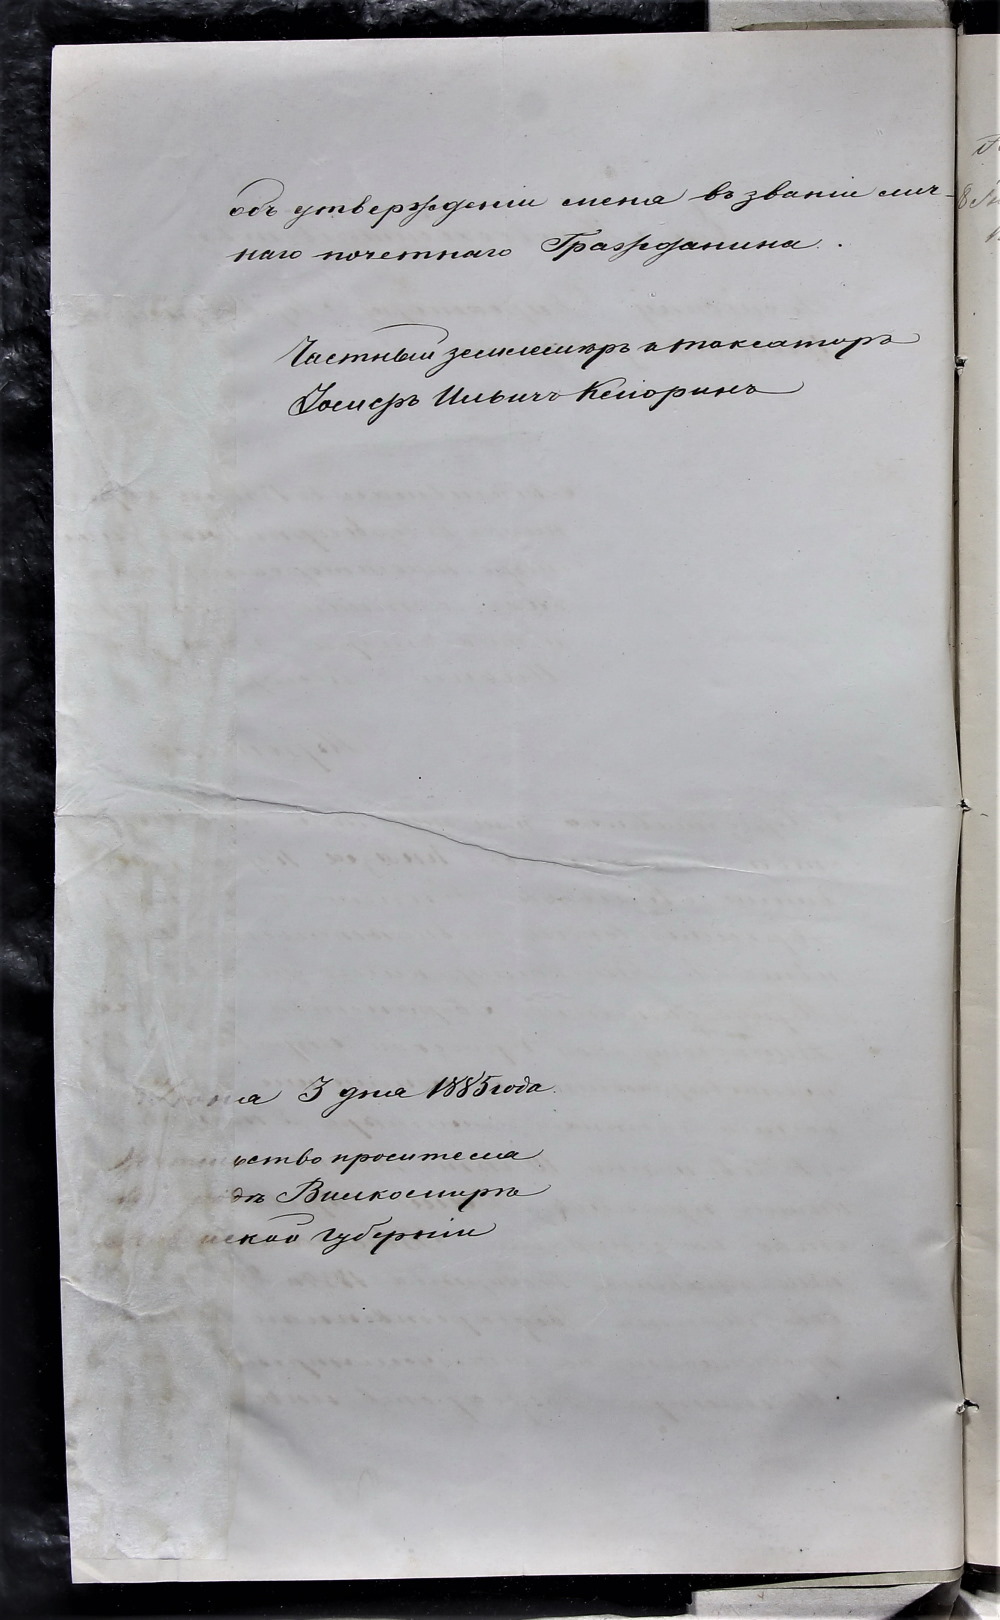 объ утвержденiи меня въ званiи лич-
наго почетнаго Гражданина.
Частный землемѣръ и таксаторъ
Iосифъ Ильичъ
3 дня 1885 года.
ьство просителя
дѣ Вилкомирѣ
нской губернiи